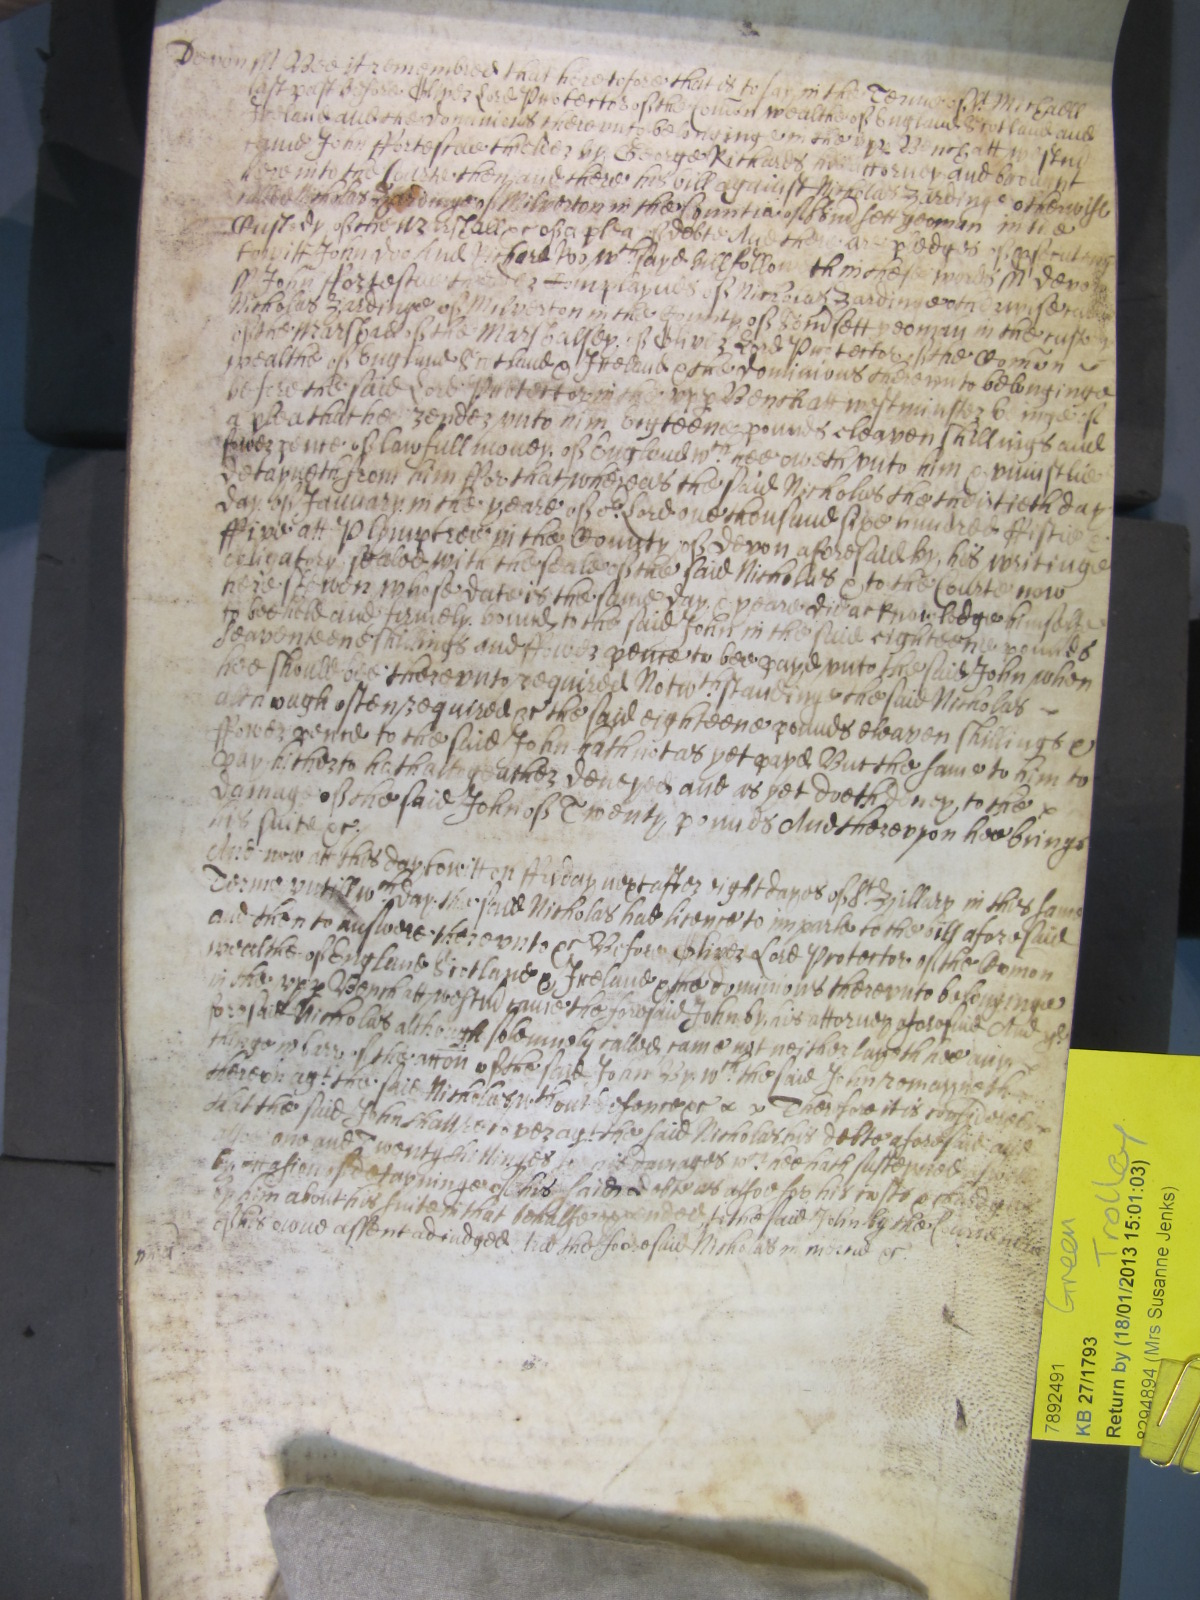 Devon ss Bee it remembred that heretofore that is to say in the Terme of St Michaell
last past before Oliver Lord Protector of the Comon wealthe of England Scotland and
Ireland and the dominions thereunto belonginge in the upp Bench att Westm
came John ffortescue the elder by George Rickards his attorney and brought
here into the Courte then and there his bill against Nicholas Hardinge otherwise
called Nicholas Hardinge of Milverton in the Countie of Somsett yeoman in the
Custody of the Marshall &c of a plea of debte And there are pledges of prosecutinge
towitt John Doo And Richard Roo wch sayd bill followeth in these words ss Devon
ss John ffortescue the elder Complaynes of Nicholas Hardinge otherwise called
Nicholas Hardinge of Milverton in the County of Somsett yeoman in the custody
of the Marshal of the Marshalsey of Oliver Lord Protector of the Comon
wealthe of England Scotland & Ireland & the dominions thereunto belonginge
before the said Lord Protector in the upp Bench att Westminster beinge of
a plea that hee render unto him eighteene pounds eleaven shillings and
fower pence of lawfull money of England wch hee oweth unto him & uniustlie
detayneth from him ffor that whereas the said Nicholas the thirtieth day
day of January in the yeare of or Lord one thousand sixe hundred ffiftie &
ffive att Plymptree in the County of Devon aforesaid by his writinge
obligatory sealed with the seale of the said Nicholas & to the Courte now
here shewen whose date is the same day & yeare did acknowledge himselfe
to bee held and firmely bound to the said John in the said eighteene pounds
eleaventeene shillings and ffower pence to bee payd unto the said John when
hee should bee thereunto required Notwthstandinge the said Nicholas
although often required &c the said eighteene pounds eleaven shillings &
ffower pence to the said John hath not as yet payd But the same to him to
pay hitherto hath altogeather deneyed and as yet doeth deney to the
damage of the said John of Twenty pounds And thereupon hee brings
his suite &c.
And now att this day towitt on ffryday next after eight dayes of St Hillary in this same
Terme untill wch day the said Nicholas had licence to imparle to the bill aforesaid
and then to answere thereunto &c Before Oliver Lord Protector of the Comon
wealthe of England Scotland & Ireland & the dominions thereunto belonginge
in the upp Bench att Westm came the foresaid John by his attorney aforesaid And the
foresaid Nicholas although solemnely called came not neither sayeth hee any
thinge in barre of the accon of the said John By wch the said John remayneth
thereon agt the said Nicholas without defence &c Therefore it is considered
that the said John shall recover agt the said Nicholas his debte aforesaid and
allsoe one and Twenty shillinges for his damages wch hee hath susteyned
by occasion of detayninge of his said debte as allsoe for his costs & charges
by him about his suite in that behalfe expended to the said John by the Courte here
of his owne assent adiudged And the foresaid Nicholas in mercie &c
7892491 Green
KB 27/1793 Trolley
Return by (18/01/2013 15:01:03)
8294894 (Mrs Susanne Jenks)